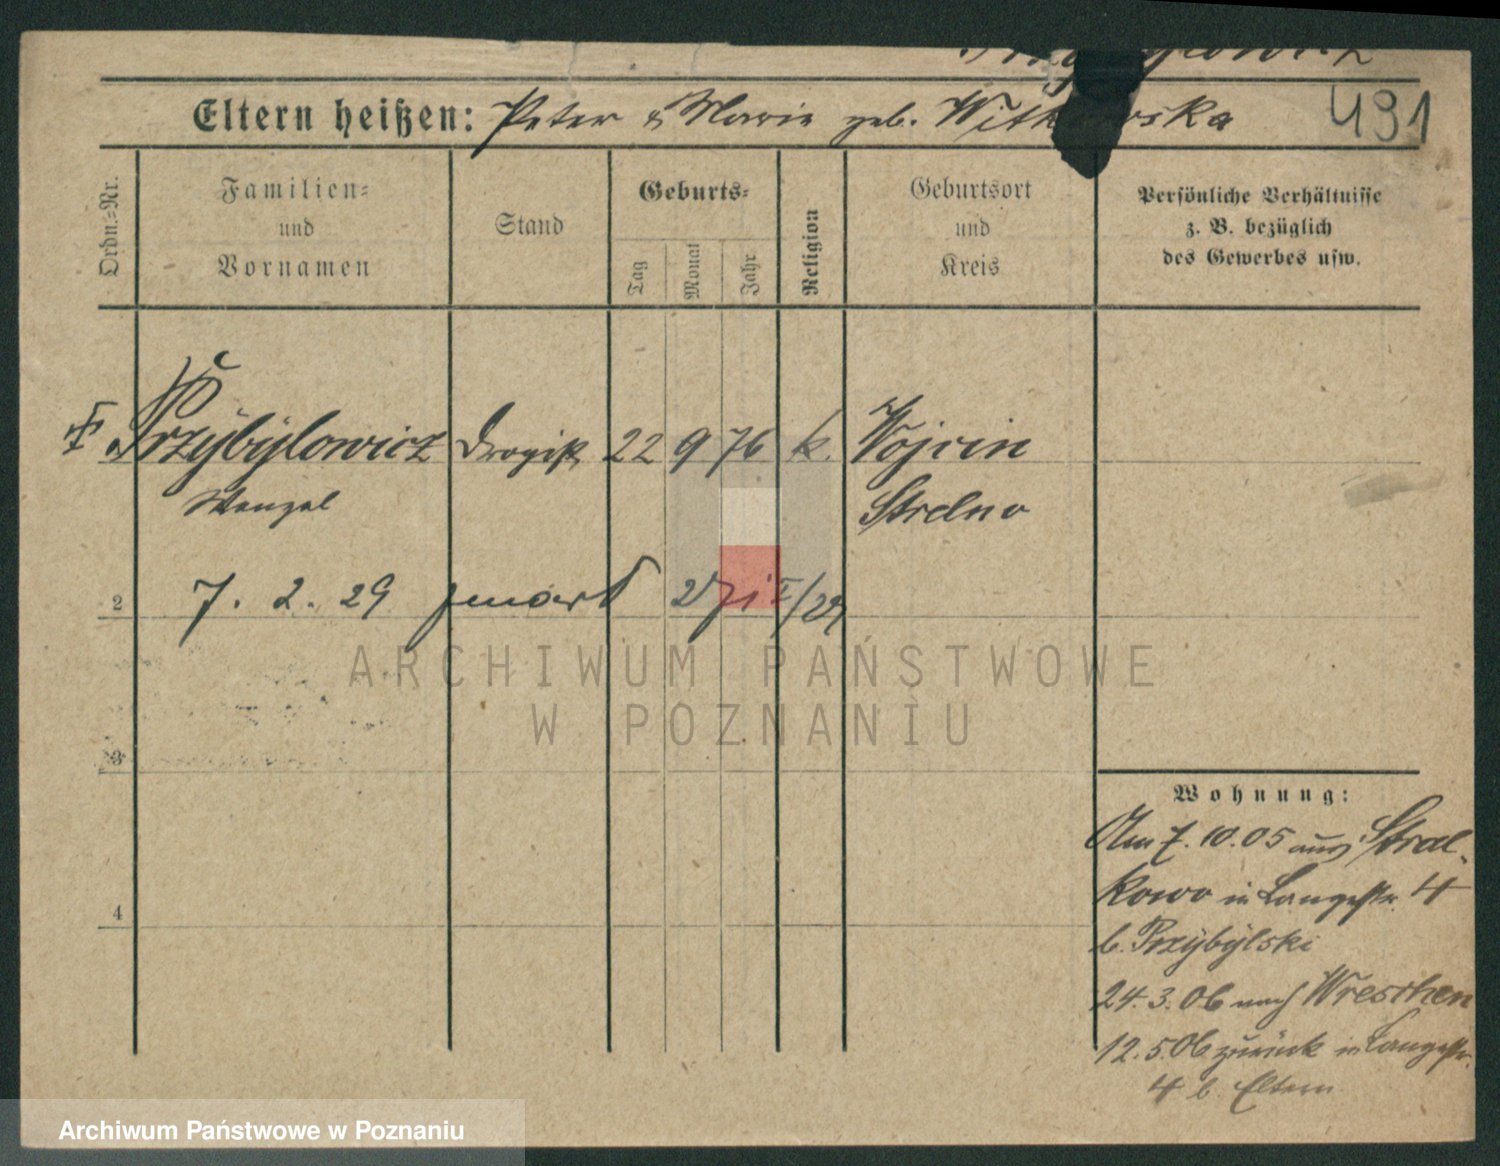 Eltern heißen: Peter & Marie geb. Witkowska
491
Ordn.-Nr.
Familien-
und
Vornamen
Stand
Geburts-
Tag
Monat
Jahr
Religion
Geburtsort
und
Kreis
Persönliche Verhältnisse
z. B. bezüglich
des Gewerbes usw.
Przybylowicz Drogist 22 9 76 k. Wojcin
Wenzel Strelno
2 7. 2. 29 zmarł
ARCHIWUM PAŃSTWOWE
W POZNANIU
3
Wohnung:
Am 7. 10. 05 aus Stral-
kowo in Langestr. 4
b. Przybylski
4
24. 3. 06 nach Wreschen
12. 5. 06 zurück in Langestr.
4 b. Eltern
Archiwum Państwowe w Poznaniu